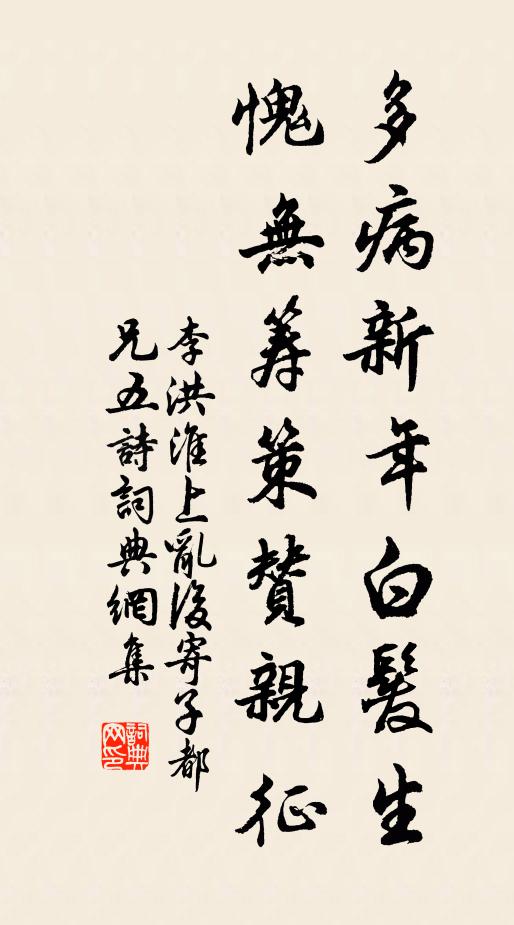 多病新年白髮生
愧無筹策贊親征
李洪淮上亂後寄子都
兄五詩詞典網集
詞典
网印